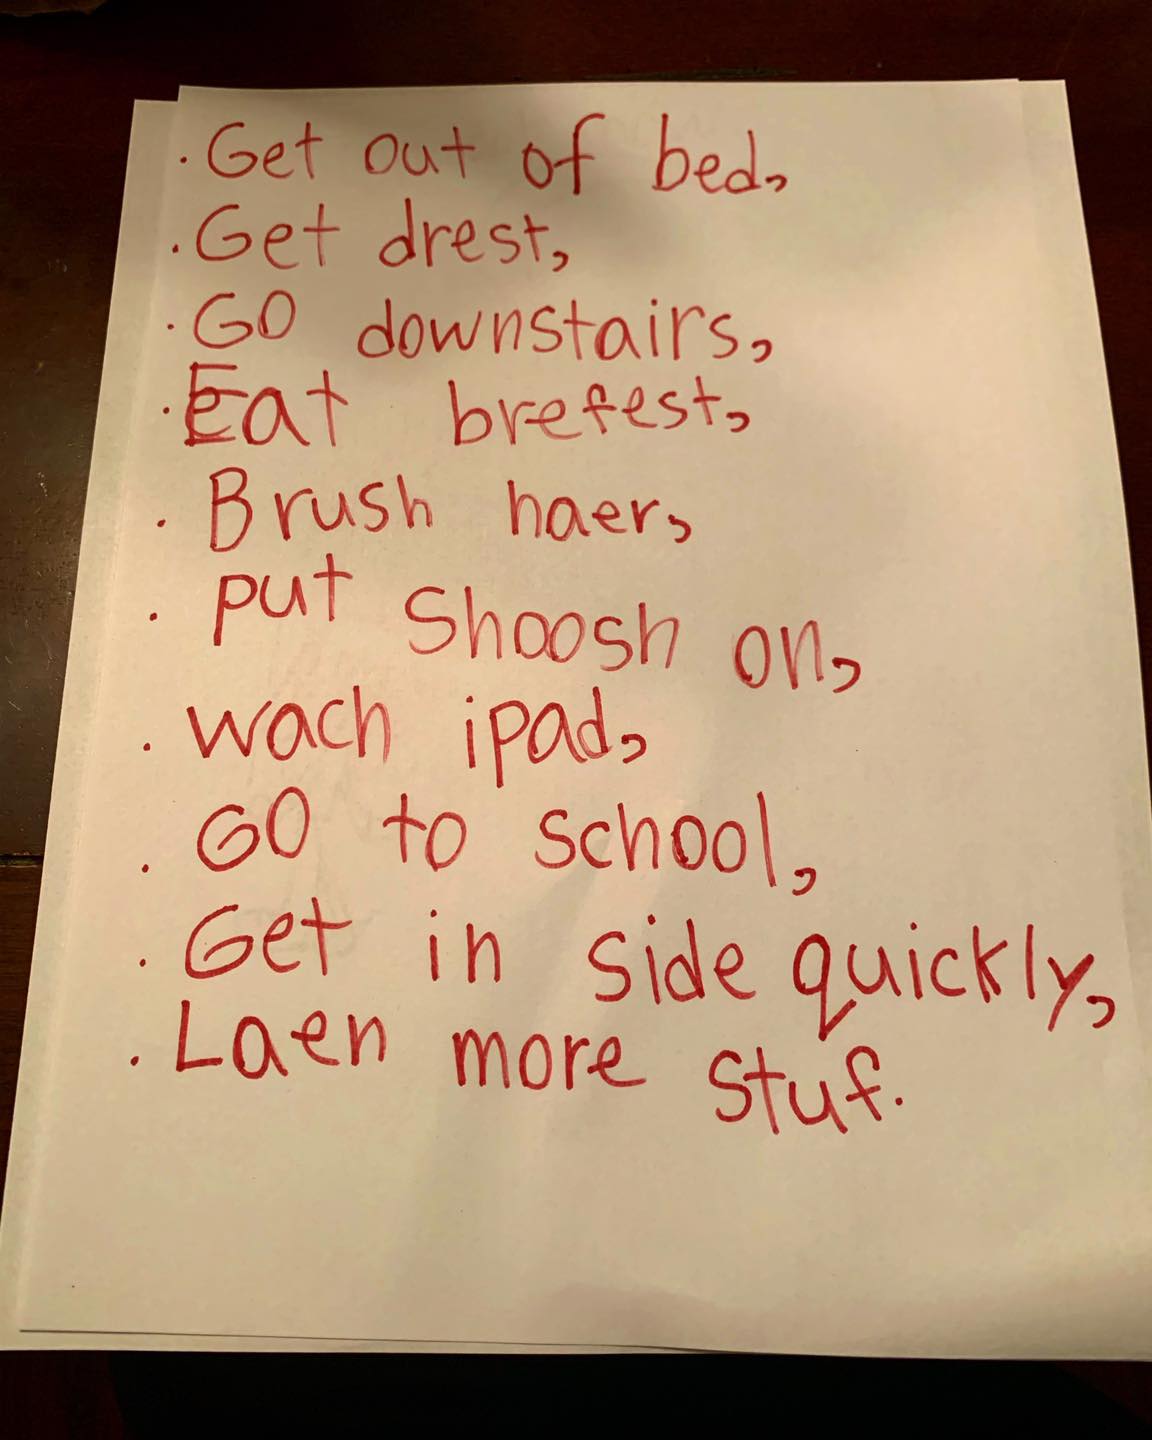 · Get out of bed,
· Get drest,
· GO downstairs,
· Eat brefest,
· Brush haer,
· put Shoosh on,
· wach ipad,
· GO to school,
· Get in side quickly,
· Laen more stuf.